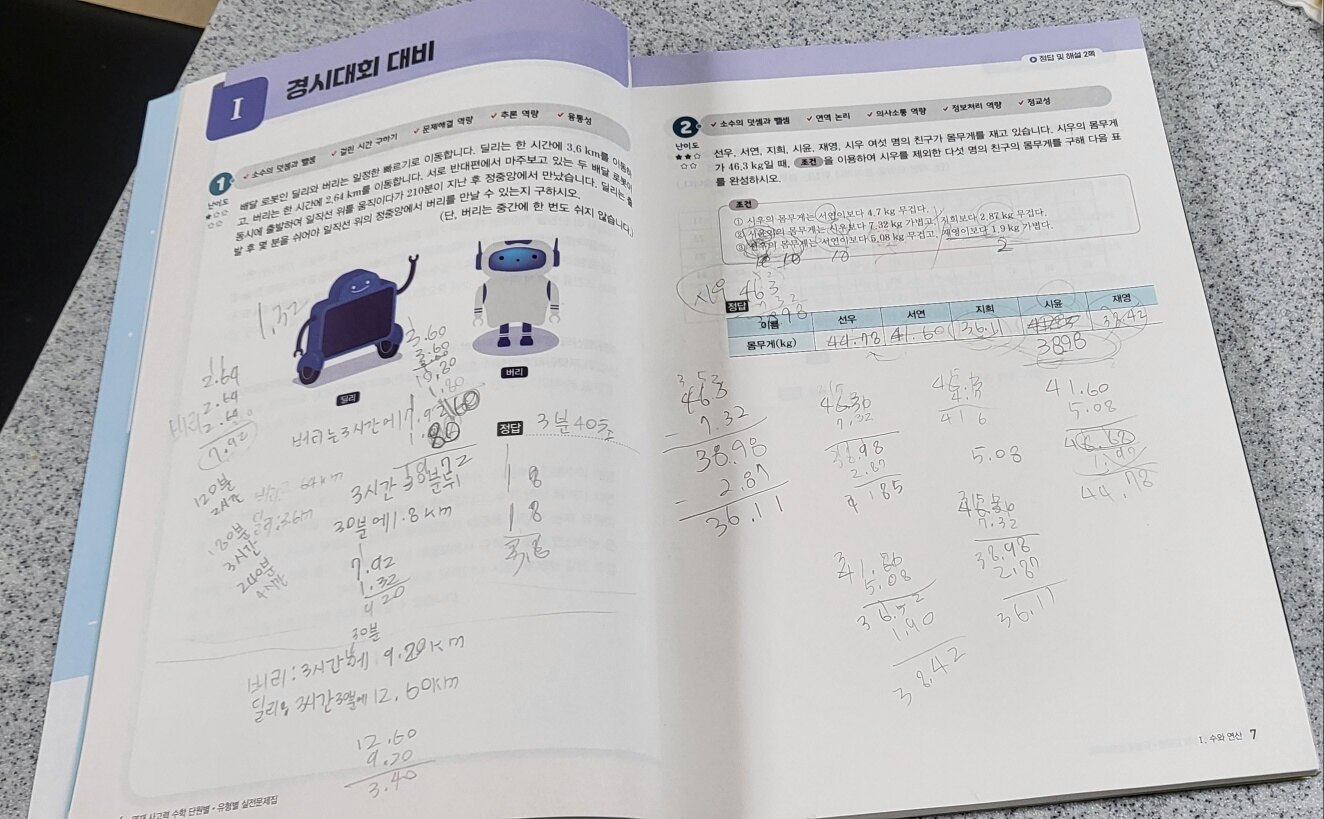 I
경시대회 대비
✓ 소수의 덧셈과 뺄셈 ✓ 걸린 시간 구하기 ✓ 문제해결 역량 ✓ 추론 역량 ✓ 융통성
1
난이도
★☆☆
☆☆
배달 로봇인 딜리와 버리는 일정한 빠르기로 이동합니다. 딜리는 한 시간에 3.6 km를 이동하
고, 버리는 한 시간에 2.64 km를 이동합니다. 서로 반대편에서 마주보고 있는 두 배달 로봇이
동시에 출발하여 일직선 위를 움직이다가 210분이 지난 후 정중앙에서 만났습니다. 딜리는 출
발 후 몇 분을 쉬어야 일직선 위의 정중앙에서 버리를 만날 수 있는지 구하시오.
(단, 버리는 중간에 한 번도 쉬지 않습니다.)
1.32
딜리
버리
3.60
3.60
2.64
2.64
버리 2.64
7.92
버리는 3시간에 7.92
정답
3분 40초
120분
2시간
180분
3시간
240분
4시간
3시간
30분에 1.8 km
1 8
1 8
7.92
1.32
9.20
30분
버리: 3시간 에 9.20 km
3시간 30분에 12.60km
12.60
9.20
3.40
영재 사고력 수학 단원별·유형별 실전문제집
정답 및 해설 2쪽
✓ 소수의 덧셈과 뺄셈 ✓ 연역 논리 ✓ 의사소통 역량 ✓ 정보처리 역량 ✓ 정교성
2
난이도
★★☆
☆☆
선우, 서연, 지희, 시윤, 재영, 시우 여섯 명의 친구가 몸무게를 재고 있습니다. 시우의 몸무게
가 46.3 kg일 때, 조건 을 이용하여 시우를 제외한 다섯 명의 친구의 몸무게를 구해 다음 표
를 완성하시오.
조건
① 시우의 몸무게는 서연이보다 4.7 kg 무겁다.
② 시윤이의 몸무게는 시우보다 7.32 kg 가볍고, 지희보다 2.87 kg 무겁다.
③ 선우의 몸무게는 서연이보다 5.08 kg 무겁고, 재영이보다 1.9 kg 가볍다.
10 10 2
시우 46.3
7.32
38.98
정답
이름 선우 서연 지희 시윤 재영
몸무게(kg) 44.78 41.60 36.11 38.98 38.42
46.3
- 7.32
38.98
- 2.87
36.11
7.32
38.98
2.87
4 185
416
5.08
41.60
5.08
44.78
5.08
36.52
1.90
38.42
7.32
38.98
2.87
36.11
I. 수와 연산 7